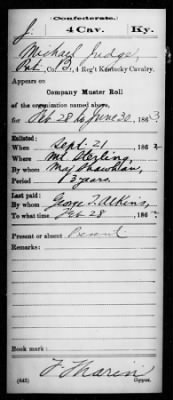 Confederate.
J. 4 Cav. Ky.
Michael Judge,
Pvt, Co. B, 4 Reg't Kentucky Cavalry.
Appears on
Company Muster Roll
of the organization named above,
for Feb 28 to June 30, 1863
Enlisted:
When Sept. 21, 1862
Where Mt. Sterling,
By whom Maj
Period 3 years.
Last paid:
By whom George T. Atkins,
To what time Feb 28, 186
Present or absent Present
Remarks:
Book mark:
(642) Copyist.